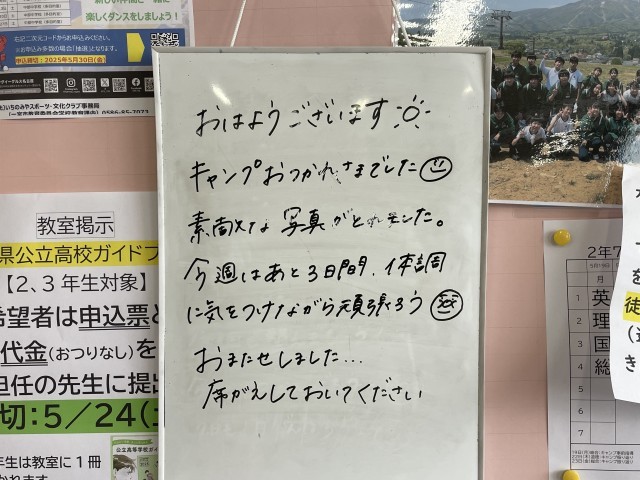 楽しくダンスをしましょう！
左記二次元コードからお申込みください。
※お申込み多数の場合「抽選」となります。
申込締切：2025年5月30日(金)
いちのみやスポーツ・文化クラブ事務局
0586-85-7073
おはようございます
キャンプおつかれさまでした
素敵な写真がとれました。
今週はあと3日間、体調
に気をつけながら頑張ろう
おまたせしました...
席がえしておいてください
教室掲示
県公立高校ガイドブ
【2、3年生対象】
希望者は申込票と
代金(おつりなし)を
担任の先生に提出
切：5／24(土
年生は教室に1冊
公立高等学校ガイ
2年7
5月19日
1 英
2 理
3 国
4 総
5
6
7
を
徒
き